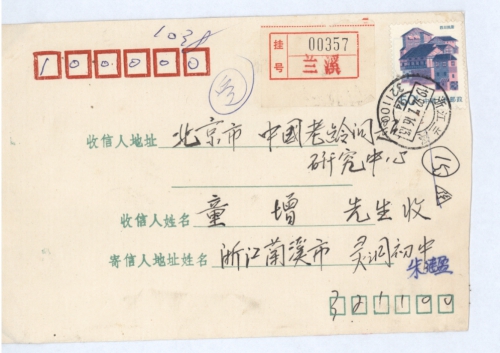 1038
挂号 00357
兰溪
100000
收信人地址 北京市 中国老龄问题
研究中心
收信人姓名 童增 先生收
寄信人地址姓名 浙江兰溪市 灵洞初中
321100